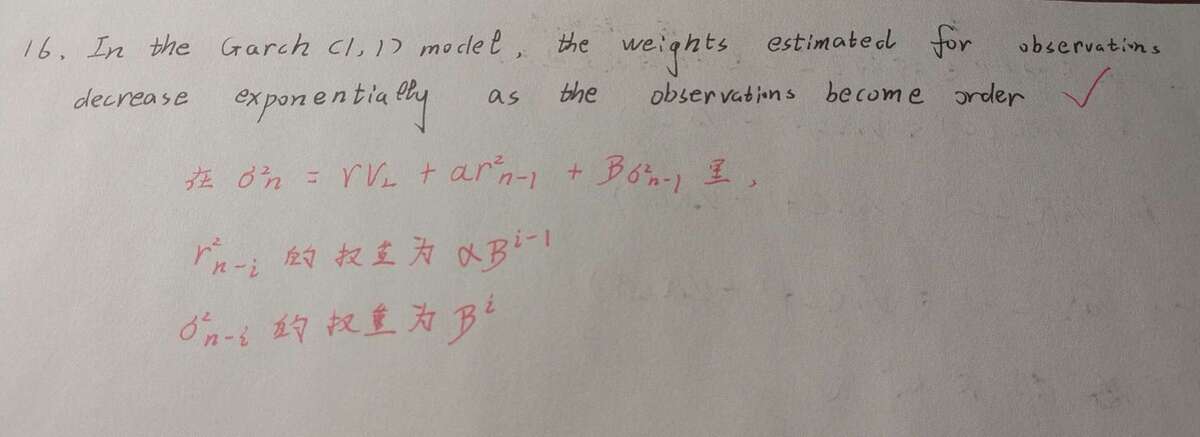 16. In the Garch (1,1) model, the weights estimated for observations
decrease exponentially as the observations become order ✓
在 σ²n = rV_L + ar²n-1 + Bσ²n-1 里,
r²n-i 的权重为 αB^i-1
σ²n-i 的权重为 B^i